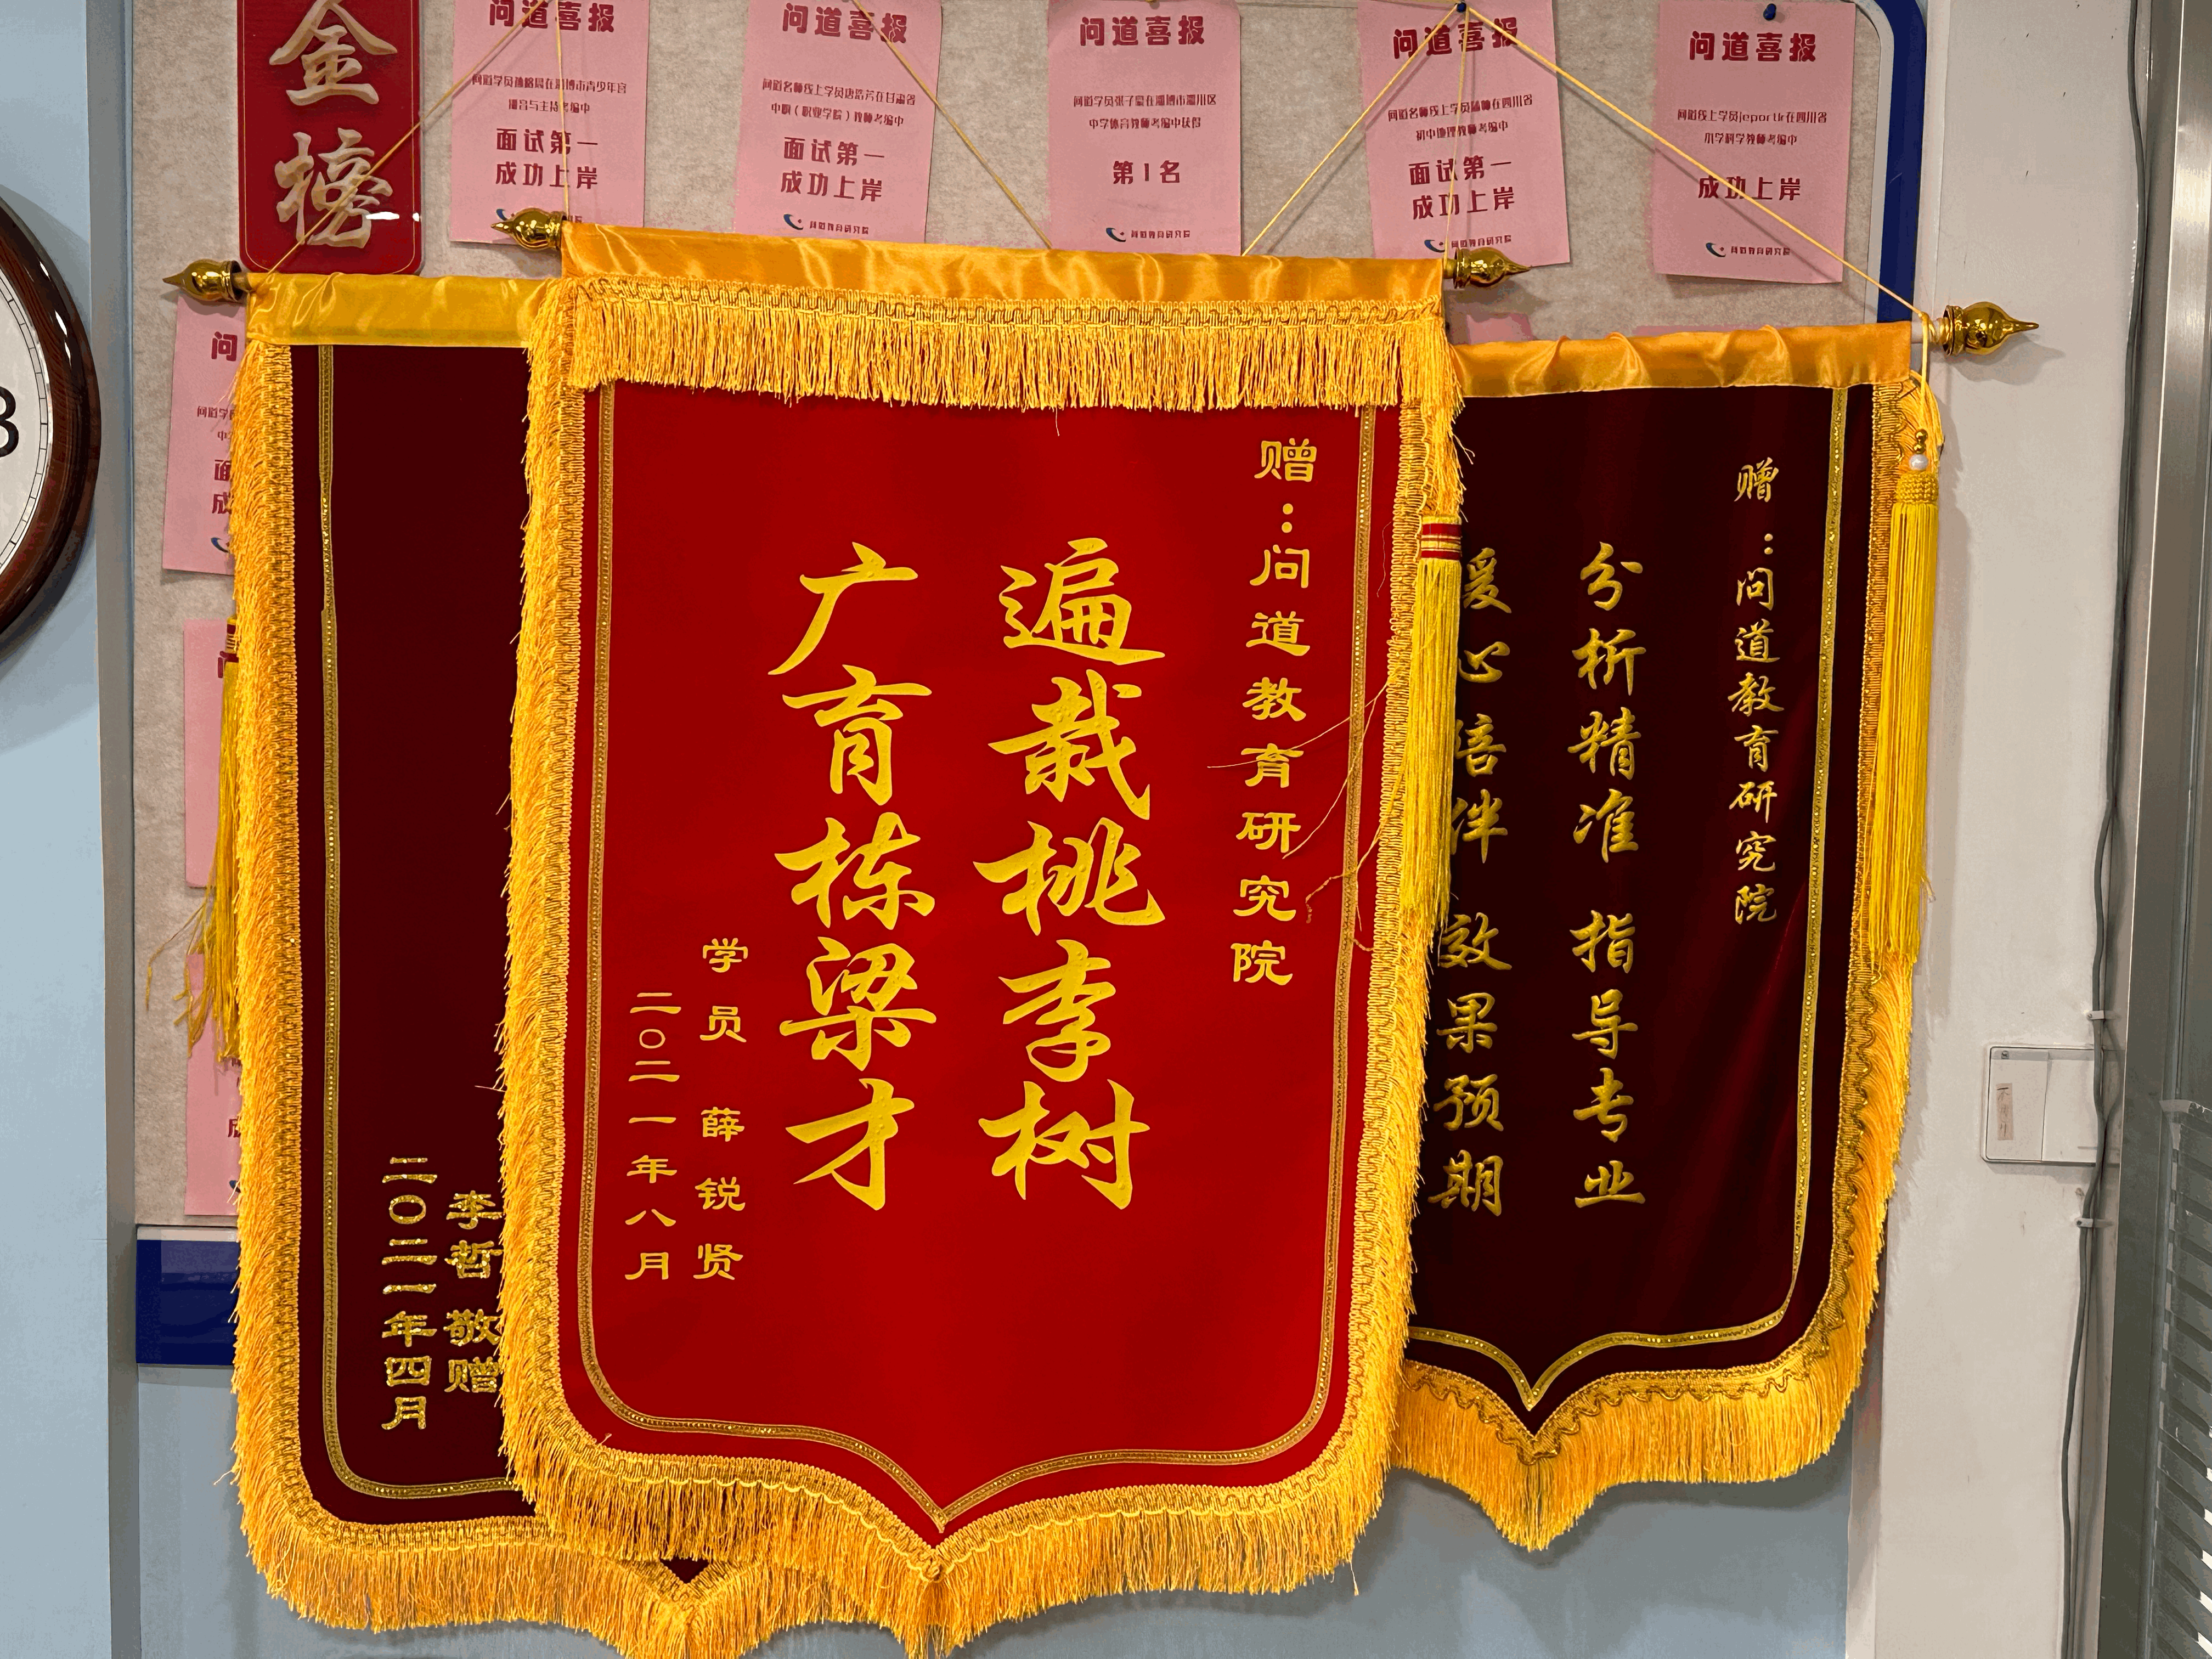 金榜
问道喜报
面试第一
成功上岸
问道教育研究院
问道喜报
问道名师线上学员唐浩芳在甘肃省
中职（职业学院）教师考编中
面试第一
成功上岸
问道教育研究院
问道喜报
问道学员张子豪在淄博市淄川区
中学体育教师考编中获得
第1名
问道教育研究院
问道喜报
初中地理教师考编中
面试第一
成功上岸
问道教育研究院
问道喜报
小学科学教师考编中
成功上岸
问道教育研究院
赠：问道教育研究院
遍栽桃李树
广育栋梁才
学员 薛锐贤
二〇二一年八月
赠：问道教育研究院
分析精准 指导专业
伴 效果预期
李哲 敬赠
二〇二一年四月